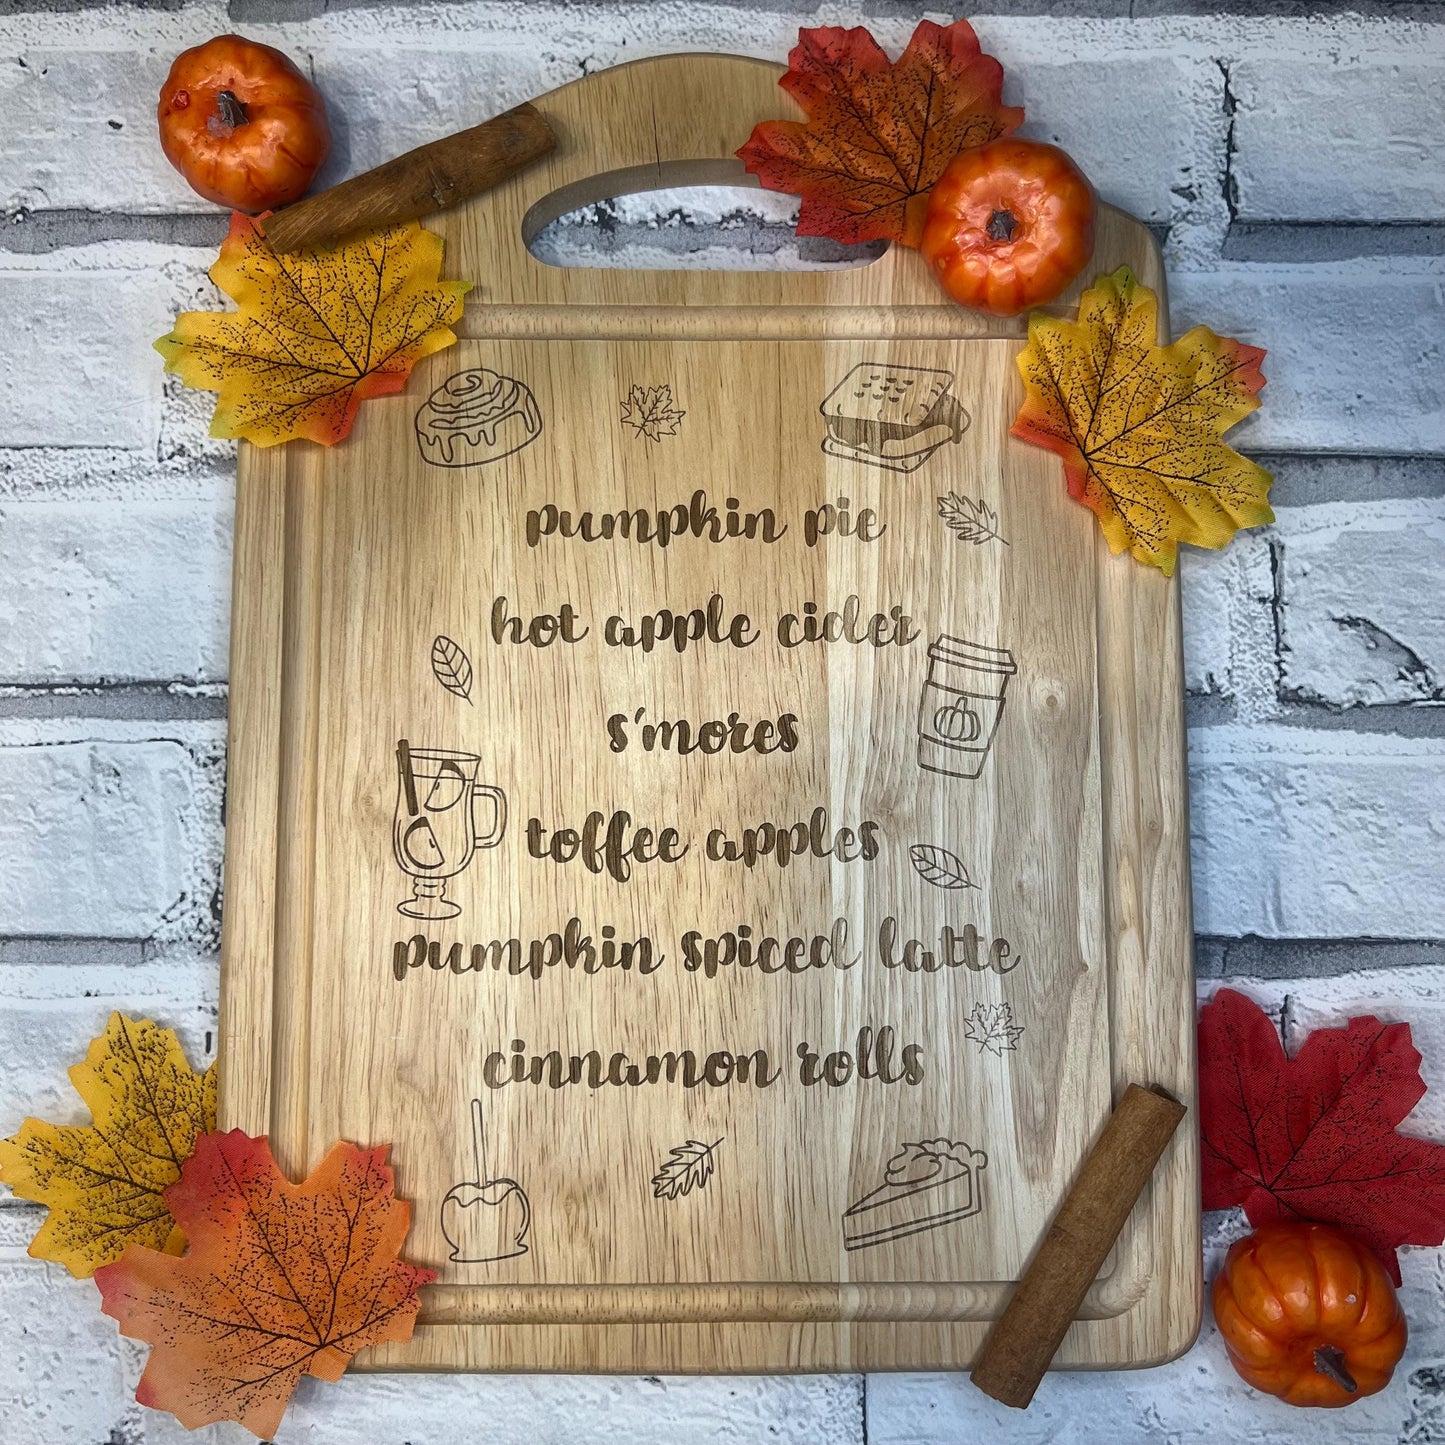 pumpkin pie
hot apple cider
s'mores
toffee apples
pumpkin spiced latte
cinnamon rolls